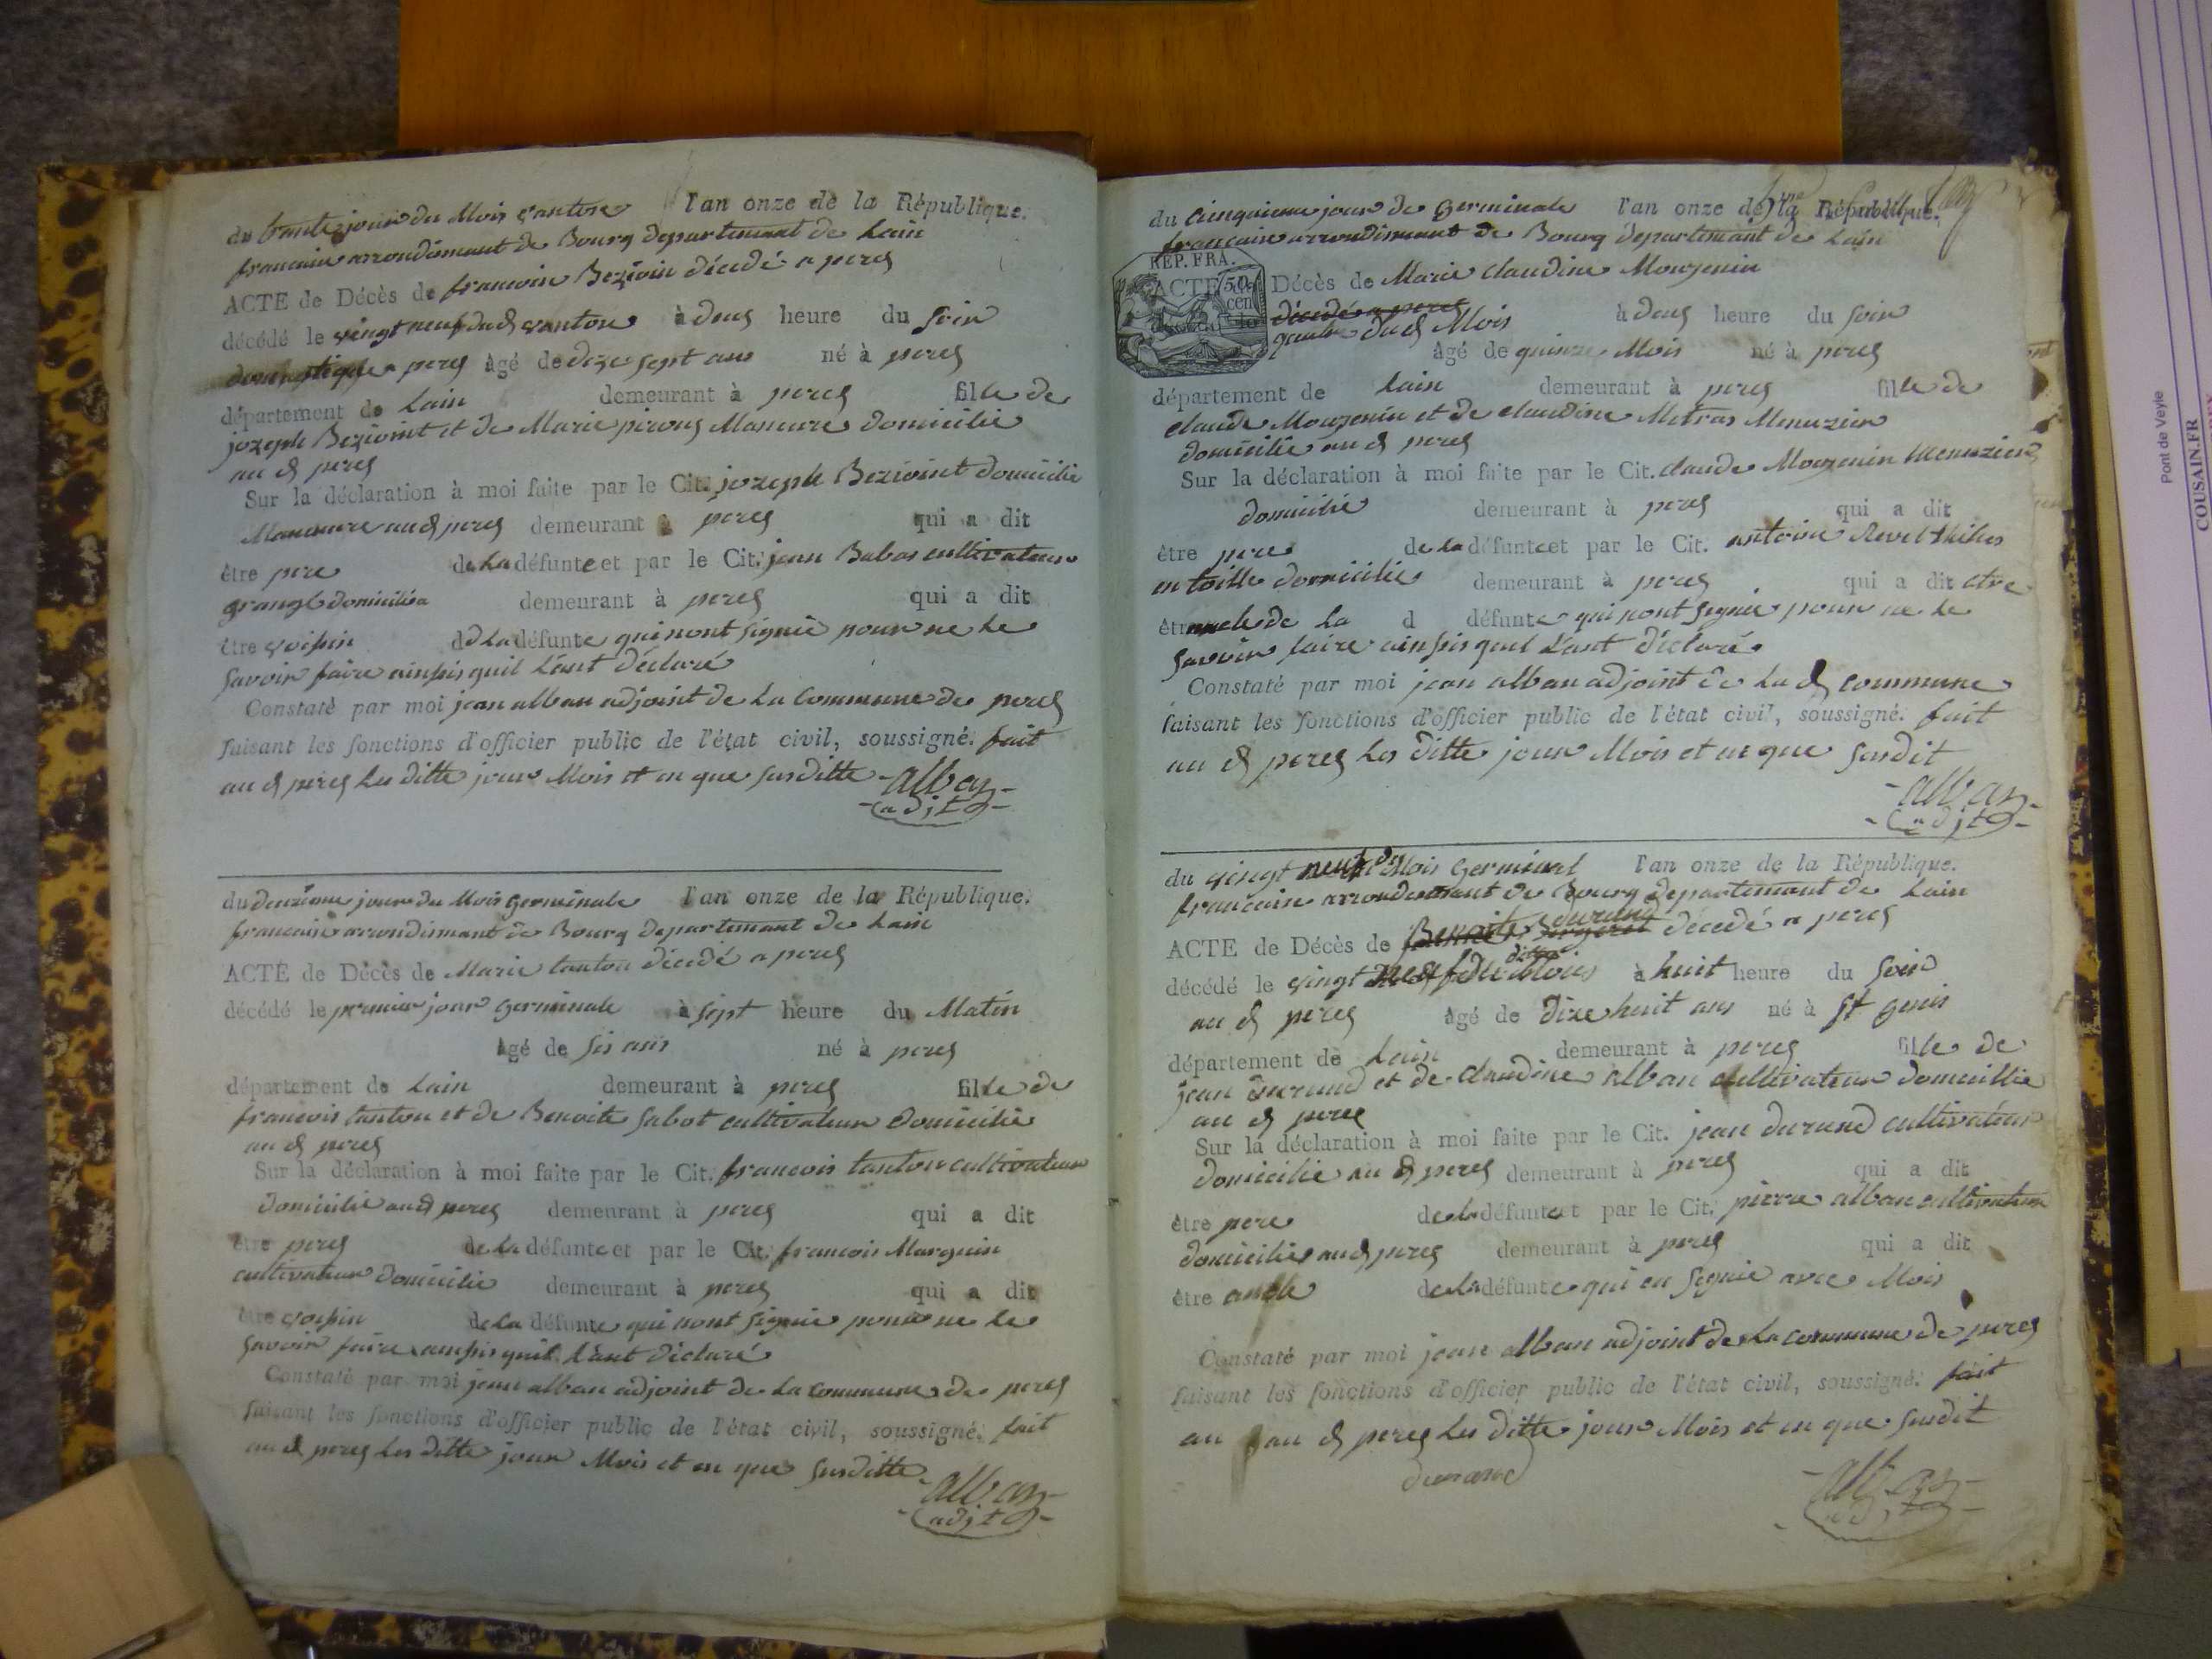 du trente jour du Mois vantose l'an onze de la République.
francaise arrondismant de Bourg departemant de Lain
ACTE de Décès de francoise Bezioin décédé a perex
décédé le vingt neuf dud vantose à deux heure du soir
domestique a perex âgé de dixe sept ans né à perex
département de Lain demeurant à perex fille de
jozeph Bezioint et de Marie piroux Maneuvre domicilie
au d perex
Sur la déclaration à moi faite par le Cit. jozeph Bezioint domicilie
Maneuvre au d perex demeurant à perex qui a dit
être pere de la défunte et par le Cit. jean Babas cultivateur
grangé domicilié a demeurant à perex qui a dit
être voisin de la défunte qui nont signié pour ne le
savoir faire ainsis quil l'ant déclaré
Constaté par moi jean alban adjoint de la commune de perex
faisant les fonctions d'officier public de l'état civil, soussigné. fait
au d perex les ditte jour Mois et en que susditte
alban
adjt
du deuxieme jour du Mois Germinale l'an onze de la République.
francaise arrondismant de Bourg departemant de Lain
ACTE de Décès de Marie tanton décédé a perex
décédé le premier jour Germinale à sept heure du Matin
âgé de six ans né à perex
département de Lain demeurant à perex fille de
francois tanton et de Benoite Sabot cultivateur domicilié
au d perex
Sur la déclaration à moi faite par le Cit. francois tanton cultivateur
domicilié au d perex demeurant à perex qui a dit
être perex de la défunte et par le Cit. francois Marguin
cultivateur domicilié demeurant à perex qui a dit
être voisin de la défunte qui nont signié pour ne le
savoir faire ainsis quil l'ant déclaré
Constaté par moi jean alban adjoint de la commune de perex
faisant les fonctions d'officier public de l'état civil, soussigné. fait
au d perex les ditte jour Mois et en que susditte
alban
adjt
du cinquieme jour de Germinale l'an onze de la République.
francaise arrondismant de Bourg departemant de Lain
REP. FRA.
ACTE 50 cen Décès de Marie claudine Mouzenin
décédé a perex
quatre dud Mois à deux heure du soir
âgé de quinze Mois né à perex
département de Lain demeurant à perex fille de
claude Mouzenin et de claudine Metras Menuzier
domicilié au d perex
Sur la déclaration à moi faite par le Cit. claude Mouzenin Menuzier
domicilié demeurant à perex qui a dit
être pere de la défunte et par le Cit. antoine Revel
en toille domicilié demeurant à perex qui a dit etre
être oncle de la d défunte qui nont signié pour ne le
savoir faire ainsis quil l'ant déclaré
Constaté par moi jean alban adjoint de la d commune
faisant les fonctions d'officier public de l'état civil, soussigné. fait
au d perex les ditte jour Mois et en que susdit
alban
adjt
du vingt neuf du Mois Germinal l'an onze de la République.
francaise arrondismant de Bourg departemant de Lain
ACTE de Décès de Benoite durand décédé a perex
décédé le vingt neuf du ditte Mois à huit heure du soir
au d perex âgé de dixe huit ans né à st genis
département de Lain demeurant à perex fille de
jean durand et de claudine alban cultivateur domicillié
au d perex
Sur la déclaration à moi faite par le Cit. jean durand cultivateur
domicilié au d perex demeurant à perex qui a dit
être pere de la défunte et par le Cit. pierre alban cultivateur
domicilié au d perex demeurant à perex qui a dit
être oncle de la défunte qui en signié avec Mois
Constaté par moi jean alban adjoint de la commune de perex
faisant les fonctions d'officier public de l'état civil, soussigné. fait
au au d perex les ditte jour Mois et en que susdit
durand
alban
adjt
Pont de Veyle
COUSAIN.FR